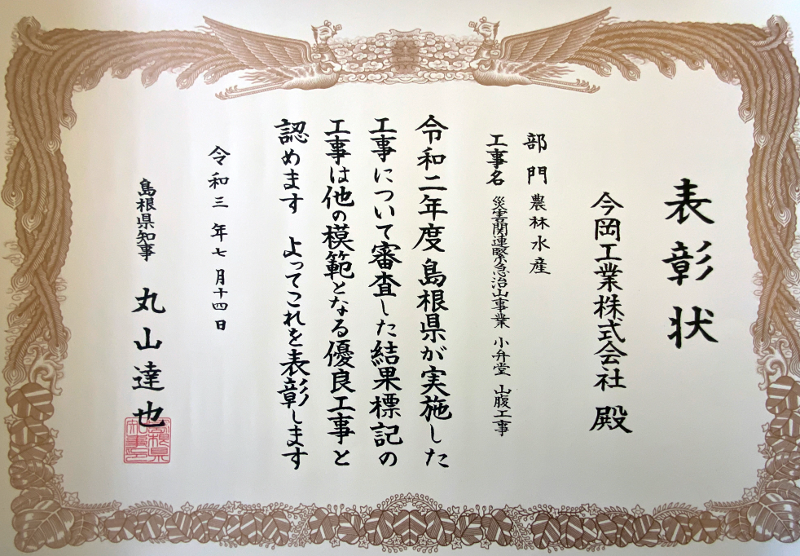 表彰状
今岡工業株式会社 殿
部門 農林水産
工事名 災害関連緊急治山事業 小弁堂 山腹工事
令和二年度島根県が実施した
工事について審査した結果標記の
工事は他の模範となる優良工事と
認めます よってこれを表彰します
令和三年七月十四日
島根県知事 丸山達也
島根県知事之印